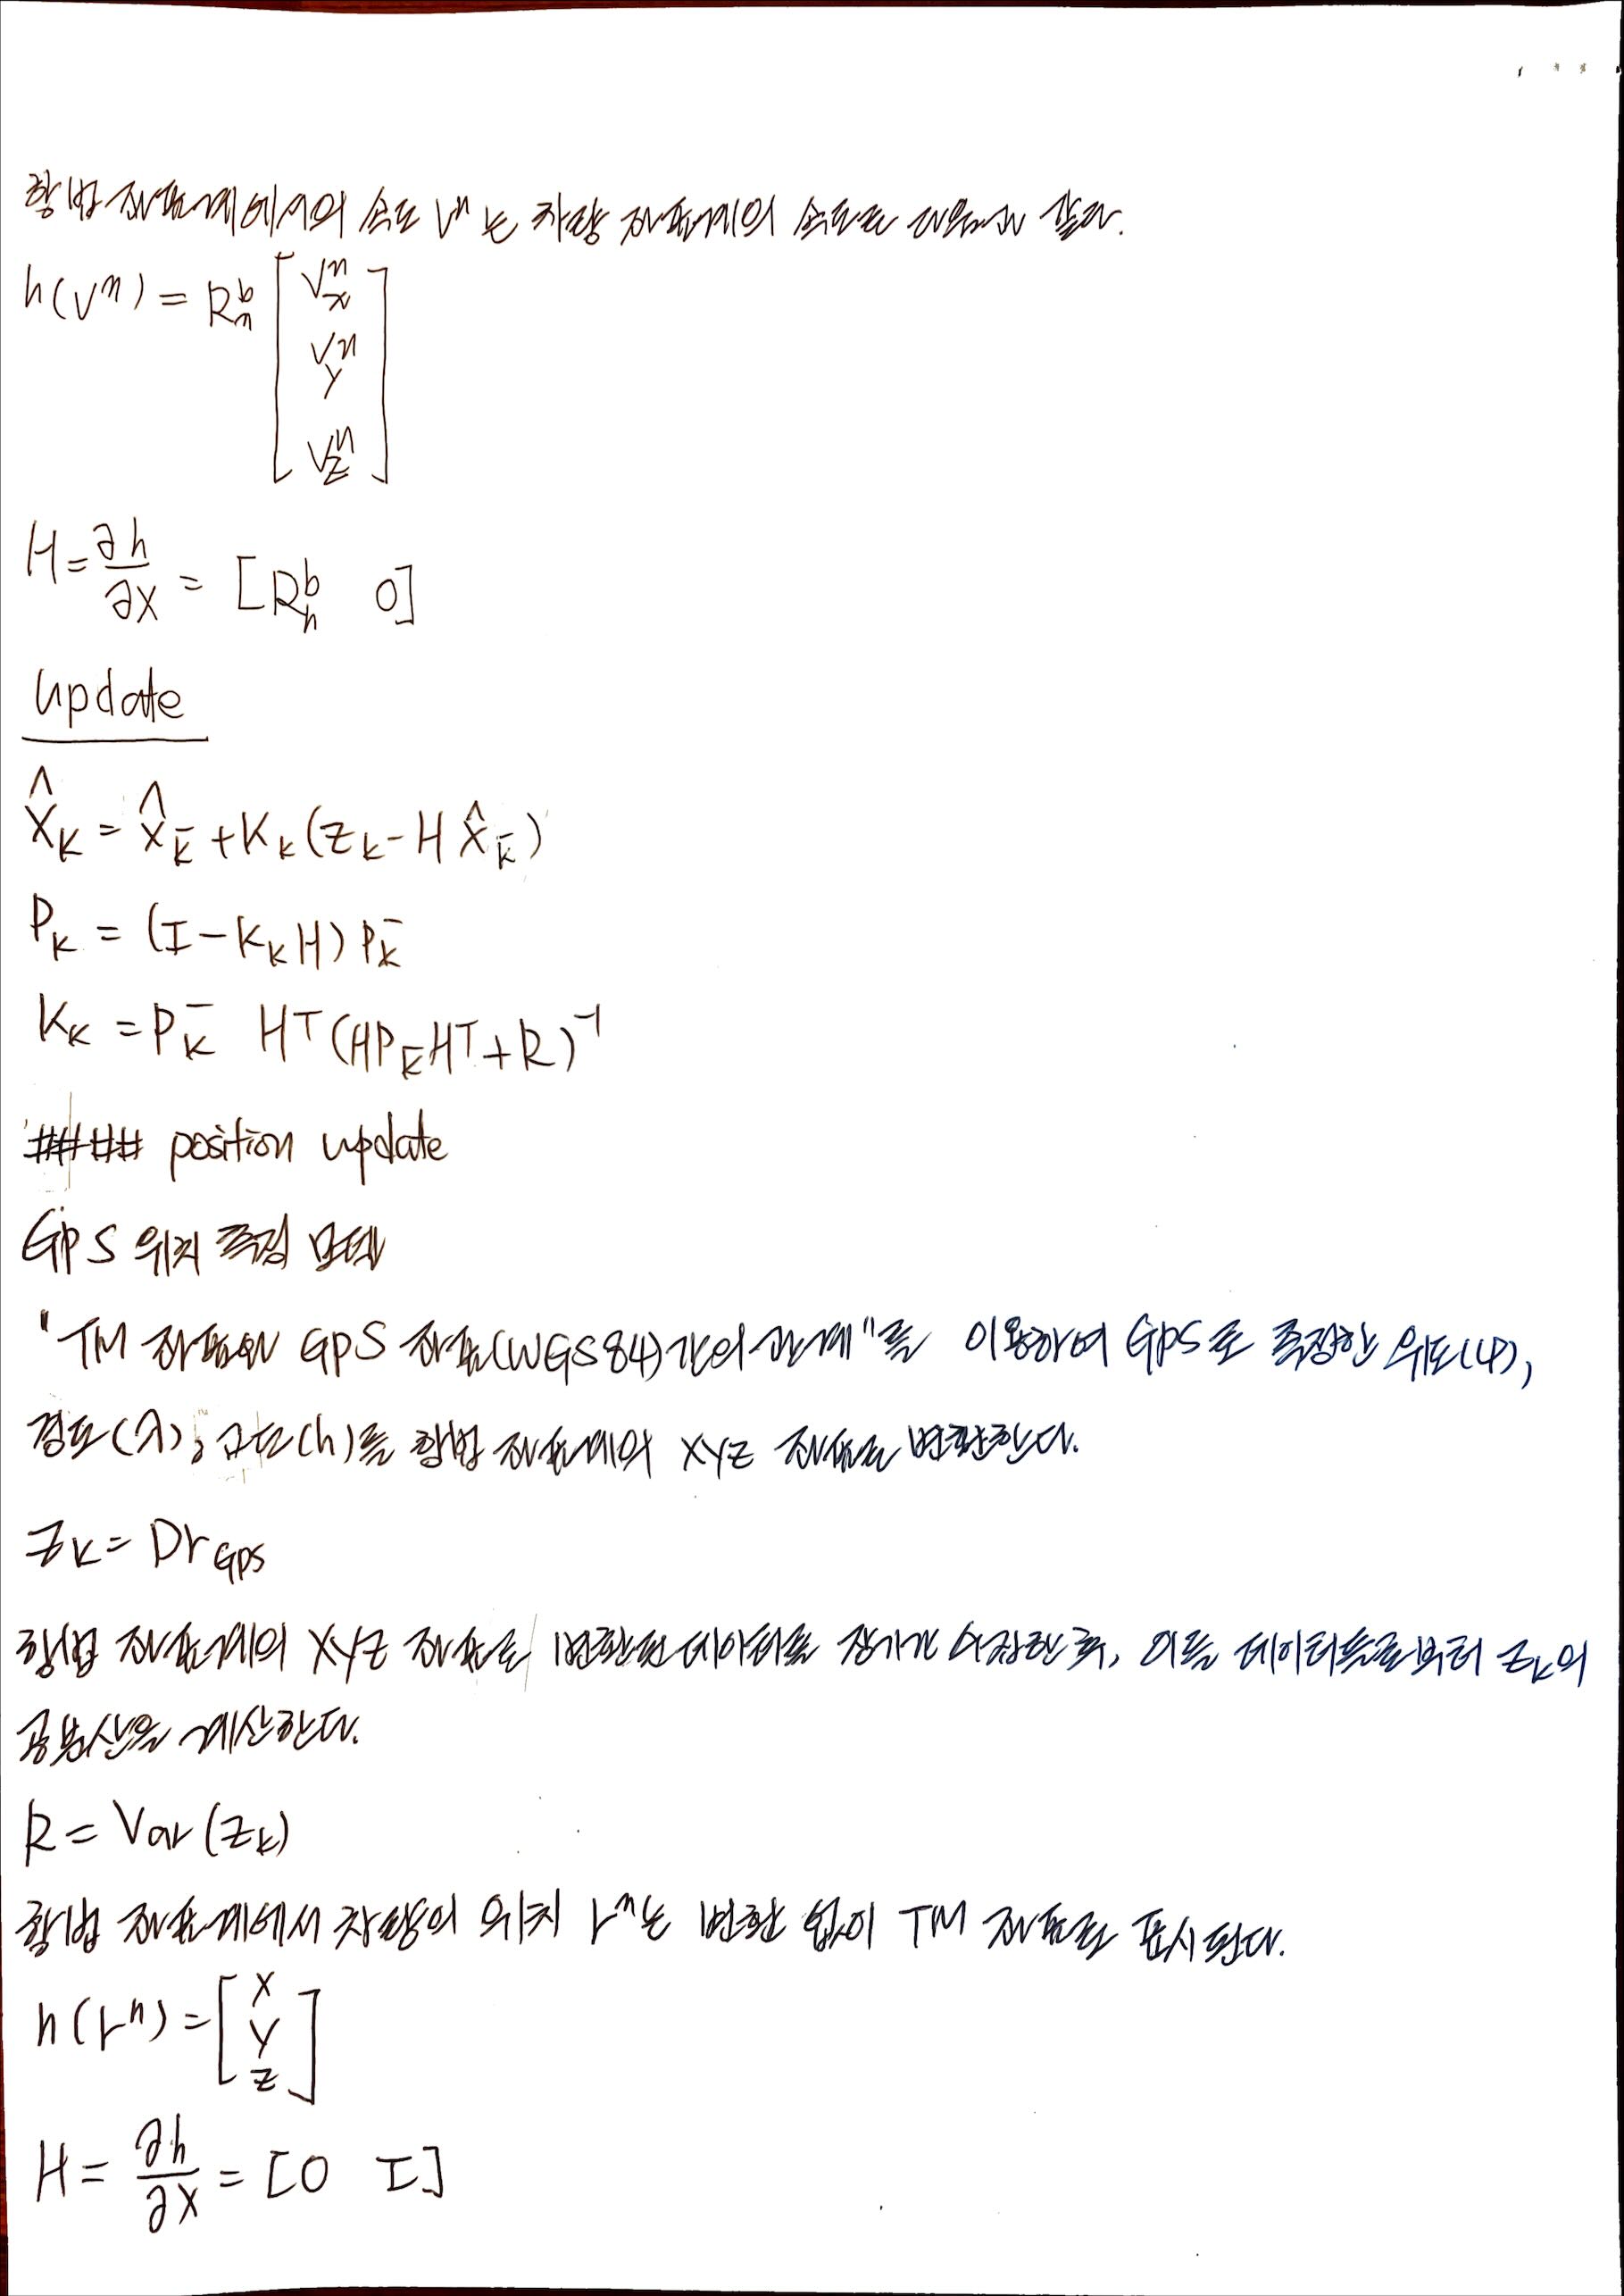 항법 좌표계에서의 속도 vⁿ는 차량 좌표계의 속도로 다음과 같다.
h(vⁿ) = R_n^b [ v_x^n v_y^n v_z^n ]
H = ∂h/∂x = [R_n^b 0]
update
x̂_k = x̂_k^- + K_k(z_k - H x̂_k^-)
P_k = (I - K_k H) P_k^-
K_k = P_k^- H^T (H P_k^- H^T + R)^-1
#### position update
GPS 위치 측정 모델
"TM 좌표와 GPS 좌표(WGS84)간의 관계"를 이용하여 GPS로 측정한 위도(φ),
경도(λ), 고도(h)를 항법 좌표계의 XYZ 좌표로 변환한다.
z_k = Dr_GPS
항법 좌표계의 XYZ 좌표로 변환된 데이터를 장기간 저장한 후, 이들 데이터들로부터 z_k의
공분산을 계산한다.
R = Var(z_k)
항법 좌표계에서 차량의 위치 rⁿ는 변환 없이 TM 좌표로 표시된다.
h(rⁿ) = [ x y z ]
H = ∂h/∂x = [0 I]